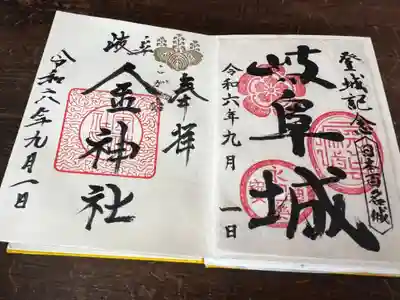 登城記念
日本百名城
岐阜城
令和六年九月一日
奉拝
岐阜
こがね
金神社
令和六年九月一日